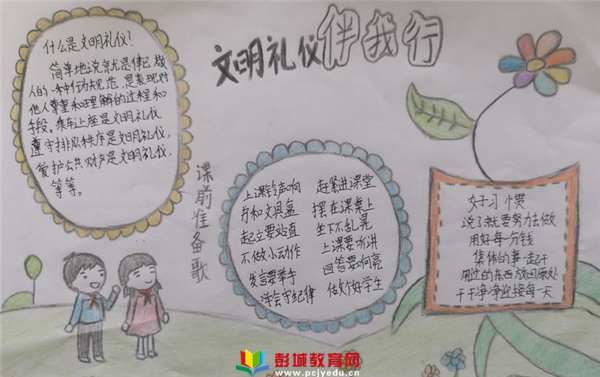 文明礼仪伴我行
什么是文明礼仪？
简单地说就是律己、敬
人的一种行为规范，是表现对
他人尊重和理解的过程和
手段。乘车上座是文明礼仪，
遵守排队秩序是文明礼仪，
爱护公共财产是文明礼仪，
等等。
课前准备歌
上课铃声响 赶紧进课堂
书和文具盒 摆在课桌上
起立要站直 坐下不乱晃
不做小动作 上课要听讲
发言要举手 回答要响亮
学会守纪律 做个好学生
好习惯
说了就要努力去做
用好每一分钱
集体的事一起干
用过的东西放回原处
干干净净迎接每一天
彭城教育网
www.pcjyedu.cn